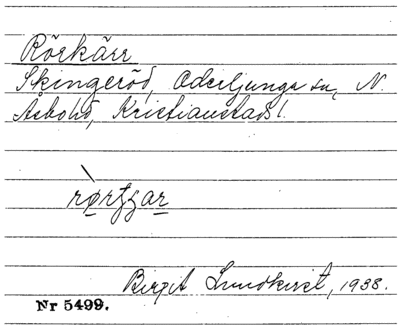 Rörkärr
Skingeröd, Oderljunga sn, N.
Åsbohd, Kristianstads l.
rørtʒʒar
Birgit Lundkvist, 1938.
Nr 5499.